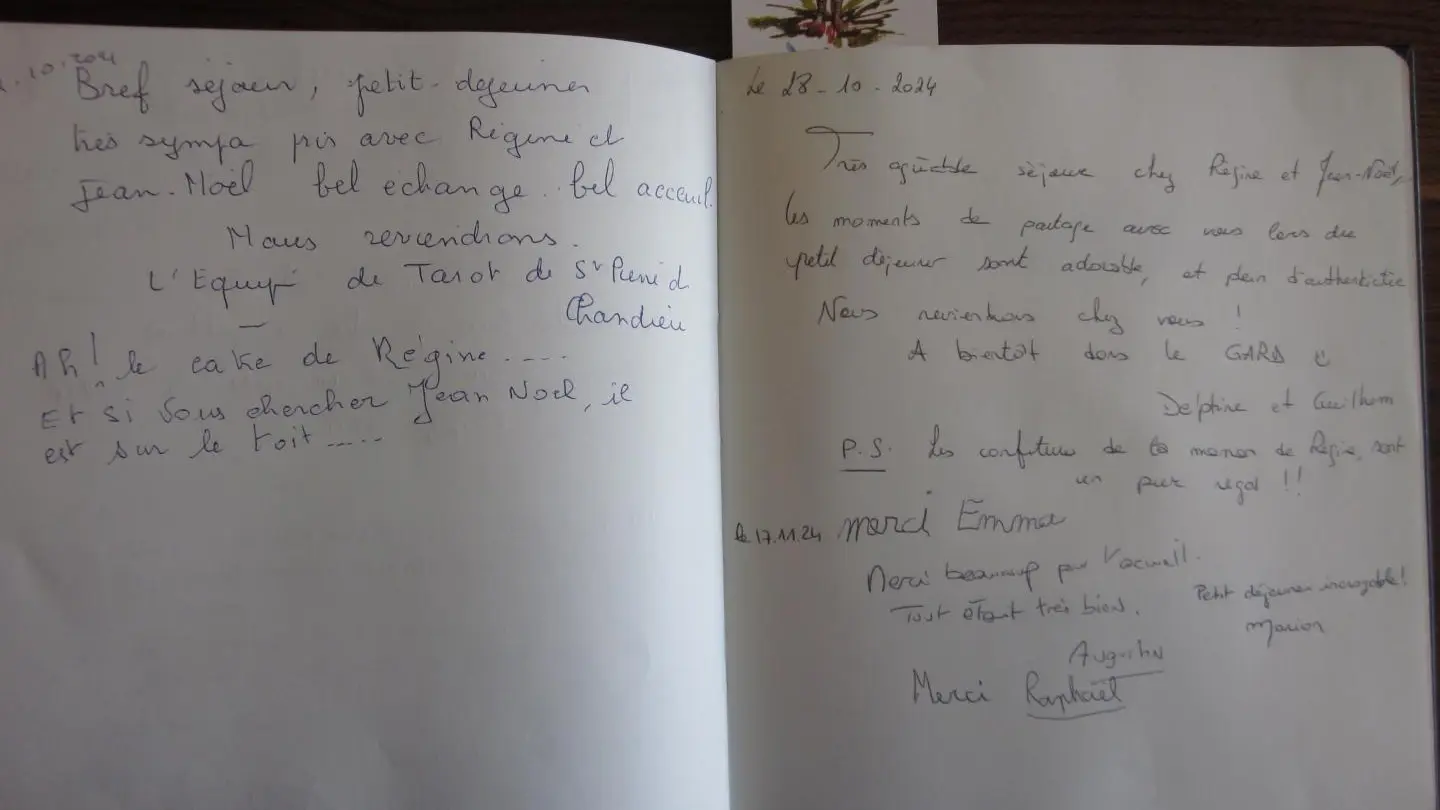 .10.2024
Bref séjour, petit-dejeuner
très sympa pris avec Régine et
Jean-Noël bel echange. bel acceuil.
Nous reviendrons.
L'Equipe de Tarot de St Pierre d
Chandieu
Ah! le cake de Régine.....
Et si vous chercher Jean Noel, il
est sur le toit.....
Le 28-10-2024
Très agréable séjour chez Régine et Jean-Noël,
les moments de partage avec vous lors du
petit déjeuner sont adorable, et plein d'authenticitée
Nous reviendrons chez vous !
A bientôt dans le GARD
Delphine et Guilhem
P.S. Les confitures de la maman de Régine, sont
un pur régal !!
le 17.11.24 merci Emma
Merci beaucoup pour l'accueil.
Tout étant très bien.
Petit déjeuner incroyable!
Marion
Augustin
Merci Raphaël